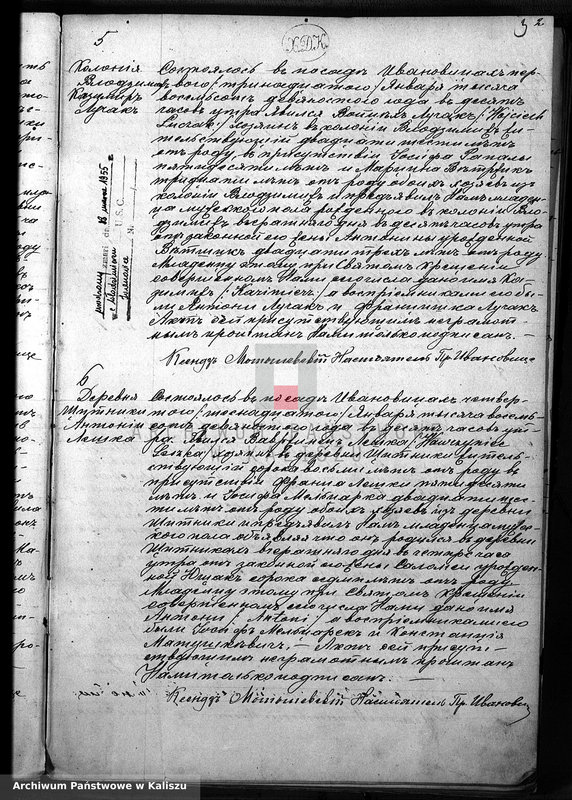 3 2
5
Х.Д.К.
Колонія
Влодзимир
Казимир
Лучак
Состоялось въ посадѣ Ивановицахъ пер-
ваго /: тринадцатаго :/ Января тысяча
восемьсотъ девяностого года въ десять
часовъ утра. Явился Войцѣхъ Лучакъ /: Wojciech
Łuczak :/ хозяинъ въ колоніи Влодзимиръ жи-
тельствующій двадцати шести лѣтъ
отъ роду, въ присутствіи Іосифа
пятидесяти лѣтъ и Мартина Вѣтрикъ
тридцати лѣтъ отъ роду обоихъ хозяевъ изъ
колоніи Влодзимиръ и предъявилъ Намъ младен-
ца мужескаго пола рожденнаго въ колоніи Вло-
дзимиръ вчерашняго дня въ десять часовъ утра
отъ законной его жены Антонины урожденной
Вѣтрикъ двадцати трехъ лѣтъ отъ роду.
Младенцу этому при Святомъ Крещеніи
совершенномъ Нами сего числа дано имя Ка-
зимиръ /: Kazimierz :/ а воспріемниками его бы-
ли Антоній Лучакъ и Францишка Лучакъ.
Актъ сей присутствующимъ неграмот-
нымъ прочитанъ Нами только подписанъ. –
Ксендзъ Мотылевскій Настоятель Пр. Ивановице
1955
U.S.C.
6
Деревня
Шитники
Антоній
Лешка
Состоялось въ посадѣ Ивановицахъ четвер-
таго /: шестнадцатаго :/ Января тысяча восемь-
сотъ девяностого года въ десять часовъ ут-
ра. Явился Вавржинецъ Лешка /: Wawrzyniec
Leszka :/ хозяинъ въ деревни Шитники житель-
ствующій сорока восьми лѣтъ отъ роду въ
присутствіи Франца Лешки пятидесяти
лѣтъ и Іосифа Мельцарка двадцати шес-
ти лѣтъ отъ роду обоихъ хозяевъ изъ деревни
Шитники и предъявилъ Намъ младенца мужес-
кого пола объявляя что онъ родился въ деревни
Шитникахъ вчерашняго дня въ четыре часа
утра отъ законной его жены Саломеи урожден-
ной Юшакъ сорока седми лѣтъ отъ роду.
Младенцу этому при Святомъ Крещеніи
совершенномъ сего числа Нами дано имя
Антоній /: Antoni :/ а воспріемниками его
были Іосифъ Мельцарекъ и Констанція
Матушкевичъ. – Актъ сей присут-
ствующимъ неграмотнымъ прочитанъ
Нами только подписанъ. –
Ксендзъ Мотылевскій Настоятель Пр. Ивановиц
Archiwum Państwowe w Kaliszu